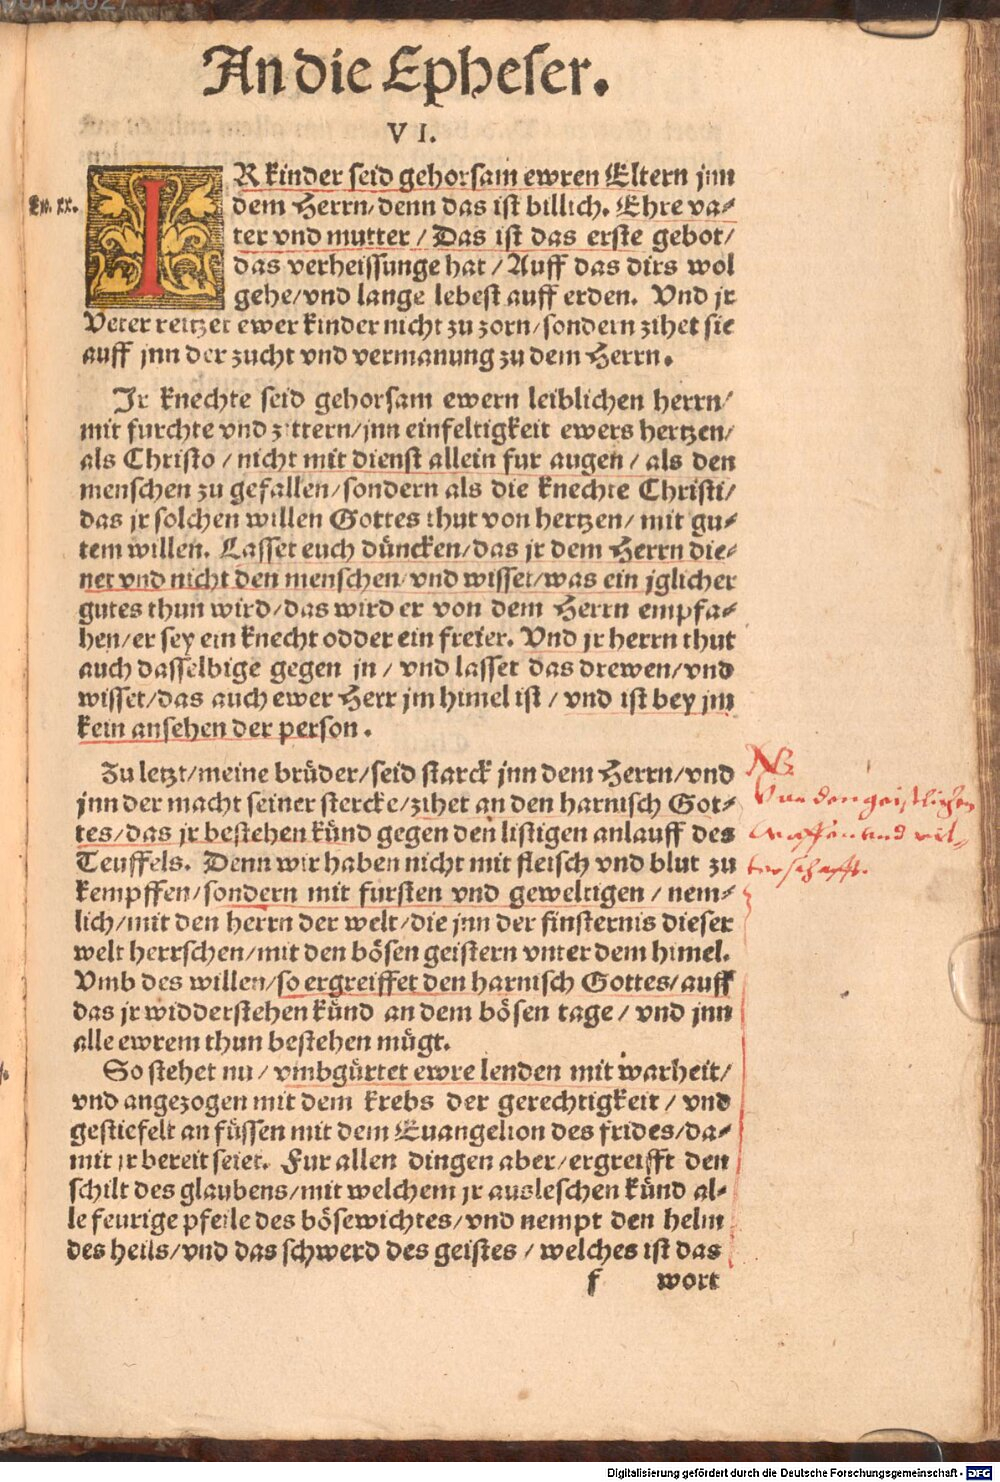 An die Epheser.
VI.
IR kinder seid gehorsam ewren Eltern jnn
Ex. xx.
dem Herrn/denn das ist billich. Ehre va-
ter vnd mutter / Das ist das erste gebot/
das verheissunge hat / Auff das dirs wol
gehe/vnd lange lebest auff erden. Vnd jr
Veter reitzet ewer kinder nicht zu zorn/sondern zihet sie
auff jnn der zucht vnd vermanung zu dem Herrn.
Ir knechte seid gehorsam ewern leiblichen herrn/
mit furchte vnd zittern/jnn einfeltigkeit ewers hertzen/
als Christo / nicht mit dienst allein fur augen / als den
menschen zu gefallen/sondern als die knechte Christi/
das jr solchen willen Gottes thut von hertzen/ mit gu-
tem willen. Lasset euch düncken/das jr dem Herrn die-
net vnd nicht den menschen/vnd wisset/was ein jglicher
gutes thun wird/das wird er von dem Herrn empfa-
hen/er sey ein knecht odder ein freier. Vnd jr herrn thut
auch dasselbige gegen jn / vnd lasset das drewen/vnd
wisset/das auch ewer Herr jm himel ist / vnd ist bey jm
kein ansehen der person.
Zu letzt/meine brüder/seid starck jnn dem Herrn/vnd
jnn der macht seiner stercke/zihet an den harnisch Got-
tes/das jr bestehen künd gegen den listigen anlauff des
Teuffels. Denn wir haben nicht mit fleisch vnd blut zu
kempffen/sondern mit fursten vnd geweltigen / nem-
lich/mit den herrn der welt/die jnn der finsternis dieser
welt herrschen/mit den bösen geistern vnter dem himel.
Vmb des willen/so ergreiffet den harnisch Gottes/auff
das jr widderstehen künd an dem bösen tage / vnd jnn
alle ewrem thun bestehen mügt.
So stehet nu / vmbgürtet ewre lenden mit warheit/
vnd angezogen mit dem krebs der gerechtigkeit / vnd
gestiefelt an füssen mit dem Euangelion des frides/da-
mit jr bereit seiet. Fur allen dingen aber/ergreifft den
schilt des glaubens/mit welchem jr ausleschen künd al-
le feurige pfeile des bösewichtes/vnd nempt den helm
des heils/vnd das schwerd des geistes / welches ist das
f wort
NB.
Von den geistlichen
Waffen vnd rit-
terschafft.
Digitalisierung gefördert durch die Deutsche Forschungsgemeinschaft - DFG